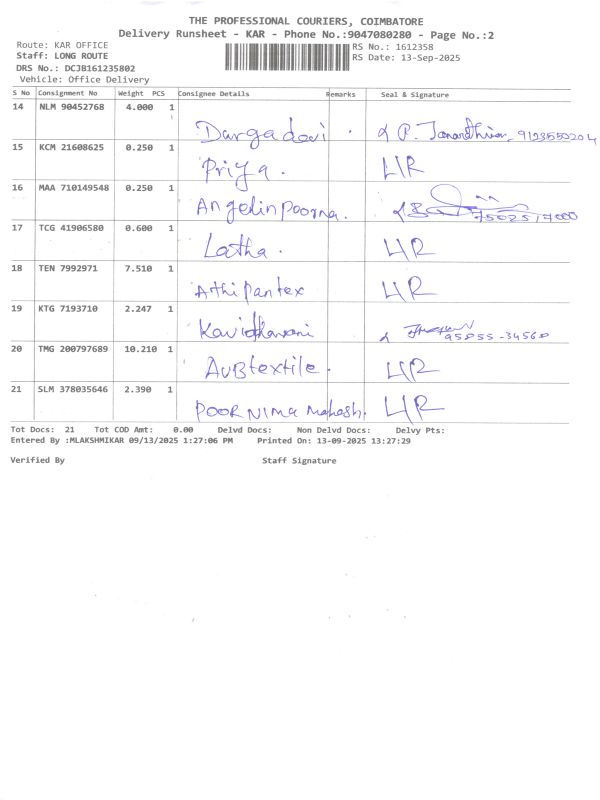 THE PROFESSIONAL COURIERS, COIMBATORE
Delivery Runsheet - KAR - Phone No.:9047080280 - Page No.:2
Route: KAR OFFICE RS No.: 1612358
Staff: LONG ROUTE RS Date: 13-Sep-2025
DRS No.: DCJB161235802
Vehicle: Office Delivery
S No Consignment No Weight PCS Consignee Details Remarks Seal & Signature
14 NLM 90452768 4.000 1 Durgadevi P. 9123550204
15 KCM 21608625 0.250 1 Priya. LIR
16 MAA 710149548 0.250 1 Angelin Poorna. 7502517000
17 TCG 41906580 0.600 1 Latha. LIR
18 TEN 7992971 7.510 1 Athi Pantex LIR
19 KTG 7193710 2.247 1 95855-34568
20 TMG 200797689 10.210 1 AVB textile. LIR
21 SLM 378035646 2.390 1 POORNIMA Mahesh. LIR
Tot Docs: 21 Tot COD Amt: 0.00 Delvd Docs: Non Delvd Docs: Delvy Pts:
Entered By :MLAKSHMIKAR 09/13/2025 1:27:06 PM Printed On: 13-09-2025 13:27:29
Verified By Staff Signature